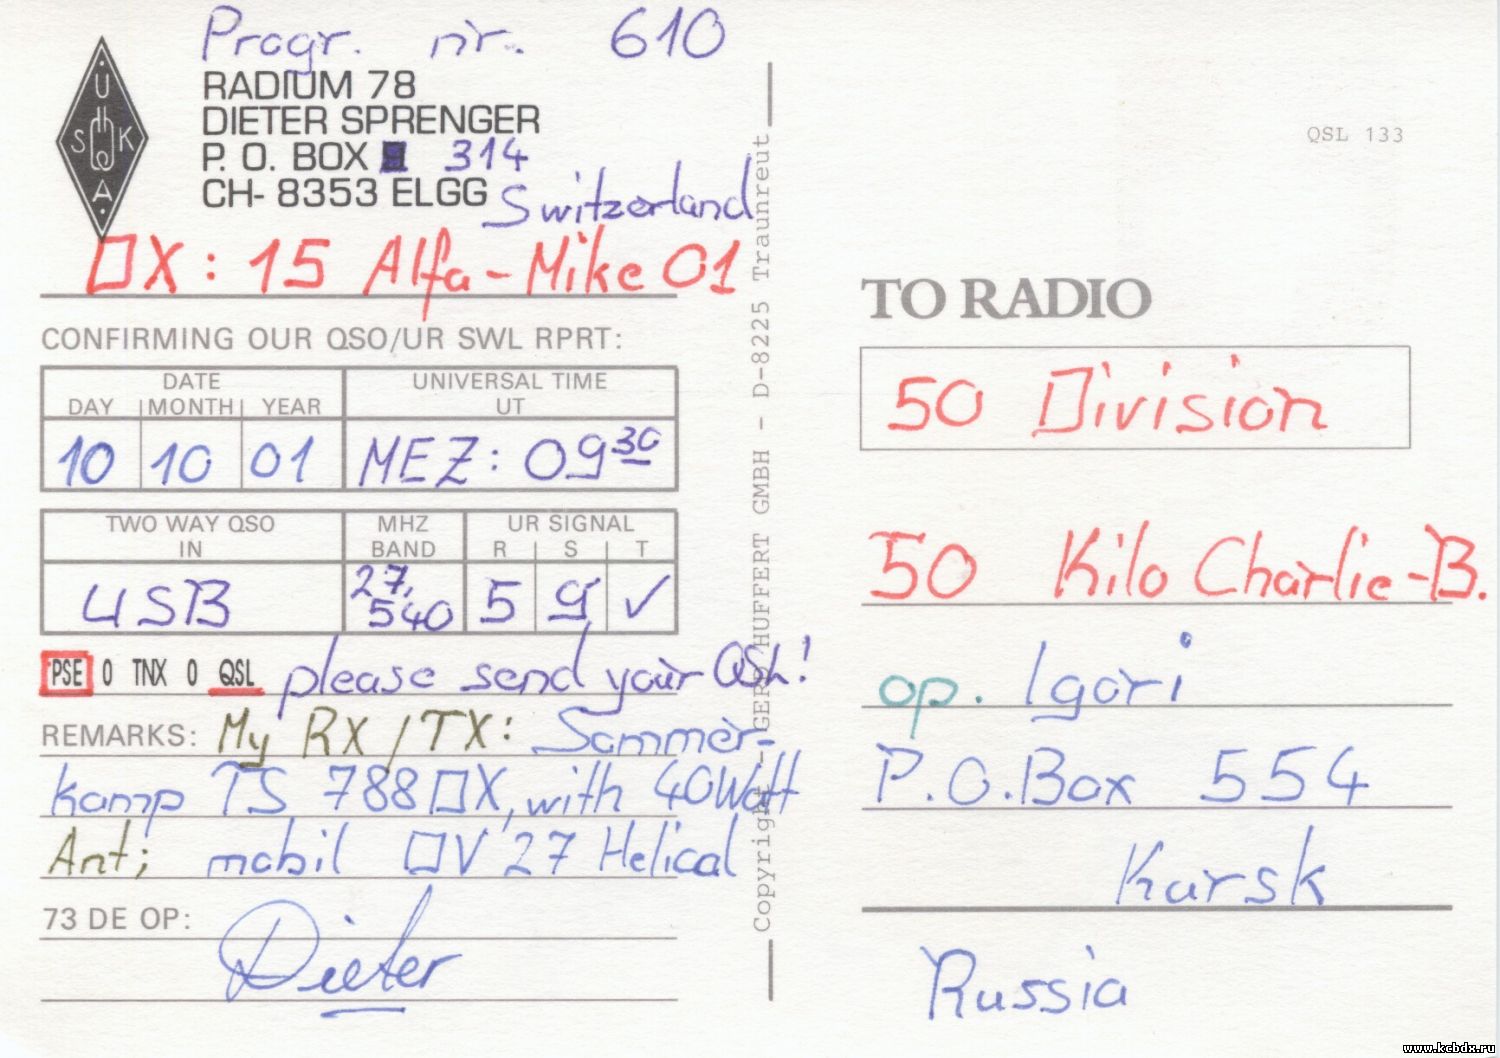 Progr. nr. 610
RADIUM 78
DIETER SPRENGER
P. O. BOX 314
CH- 8353 ELGG Switzerland
U
S K
A
DX : 15 Alfa-Mike 01
CONFIRMING OUR QSO/UR SWL RPRT:
DATE UNIVERSAL TIME
DAY MONTH YEAR UT
10 10 01 MEZ: 09 30
TWO WAY QSO MHZ UR SIGNAL
IN BAND R S T
USB 27,540 5 9 ✓
PSE O TNX O QSL please send your QSL!
REMARKS: My RX/TX: Sommer-
kamp TS 788 DX, with 40 Watt
Ant; mobil DV 27 Helical
73 DE OP:
Dieter
Copyright - GERD HUFFERT GMBH - D-8225 Traunreut
QSL 133
TO RADIO
50 Division
50 Kilo Charlie-B.
op. Igori
P.O.Box 554
Kursk
Russia
www.kcbdx.ru